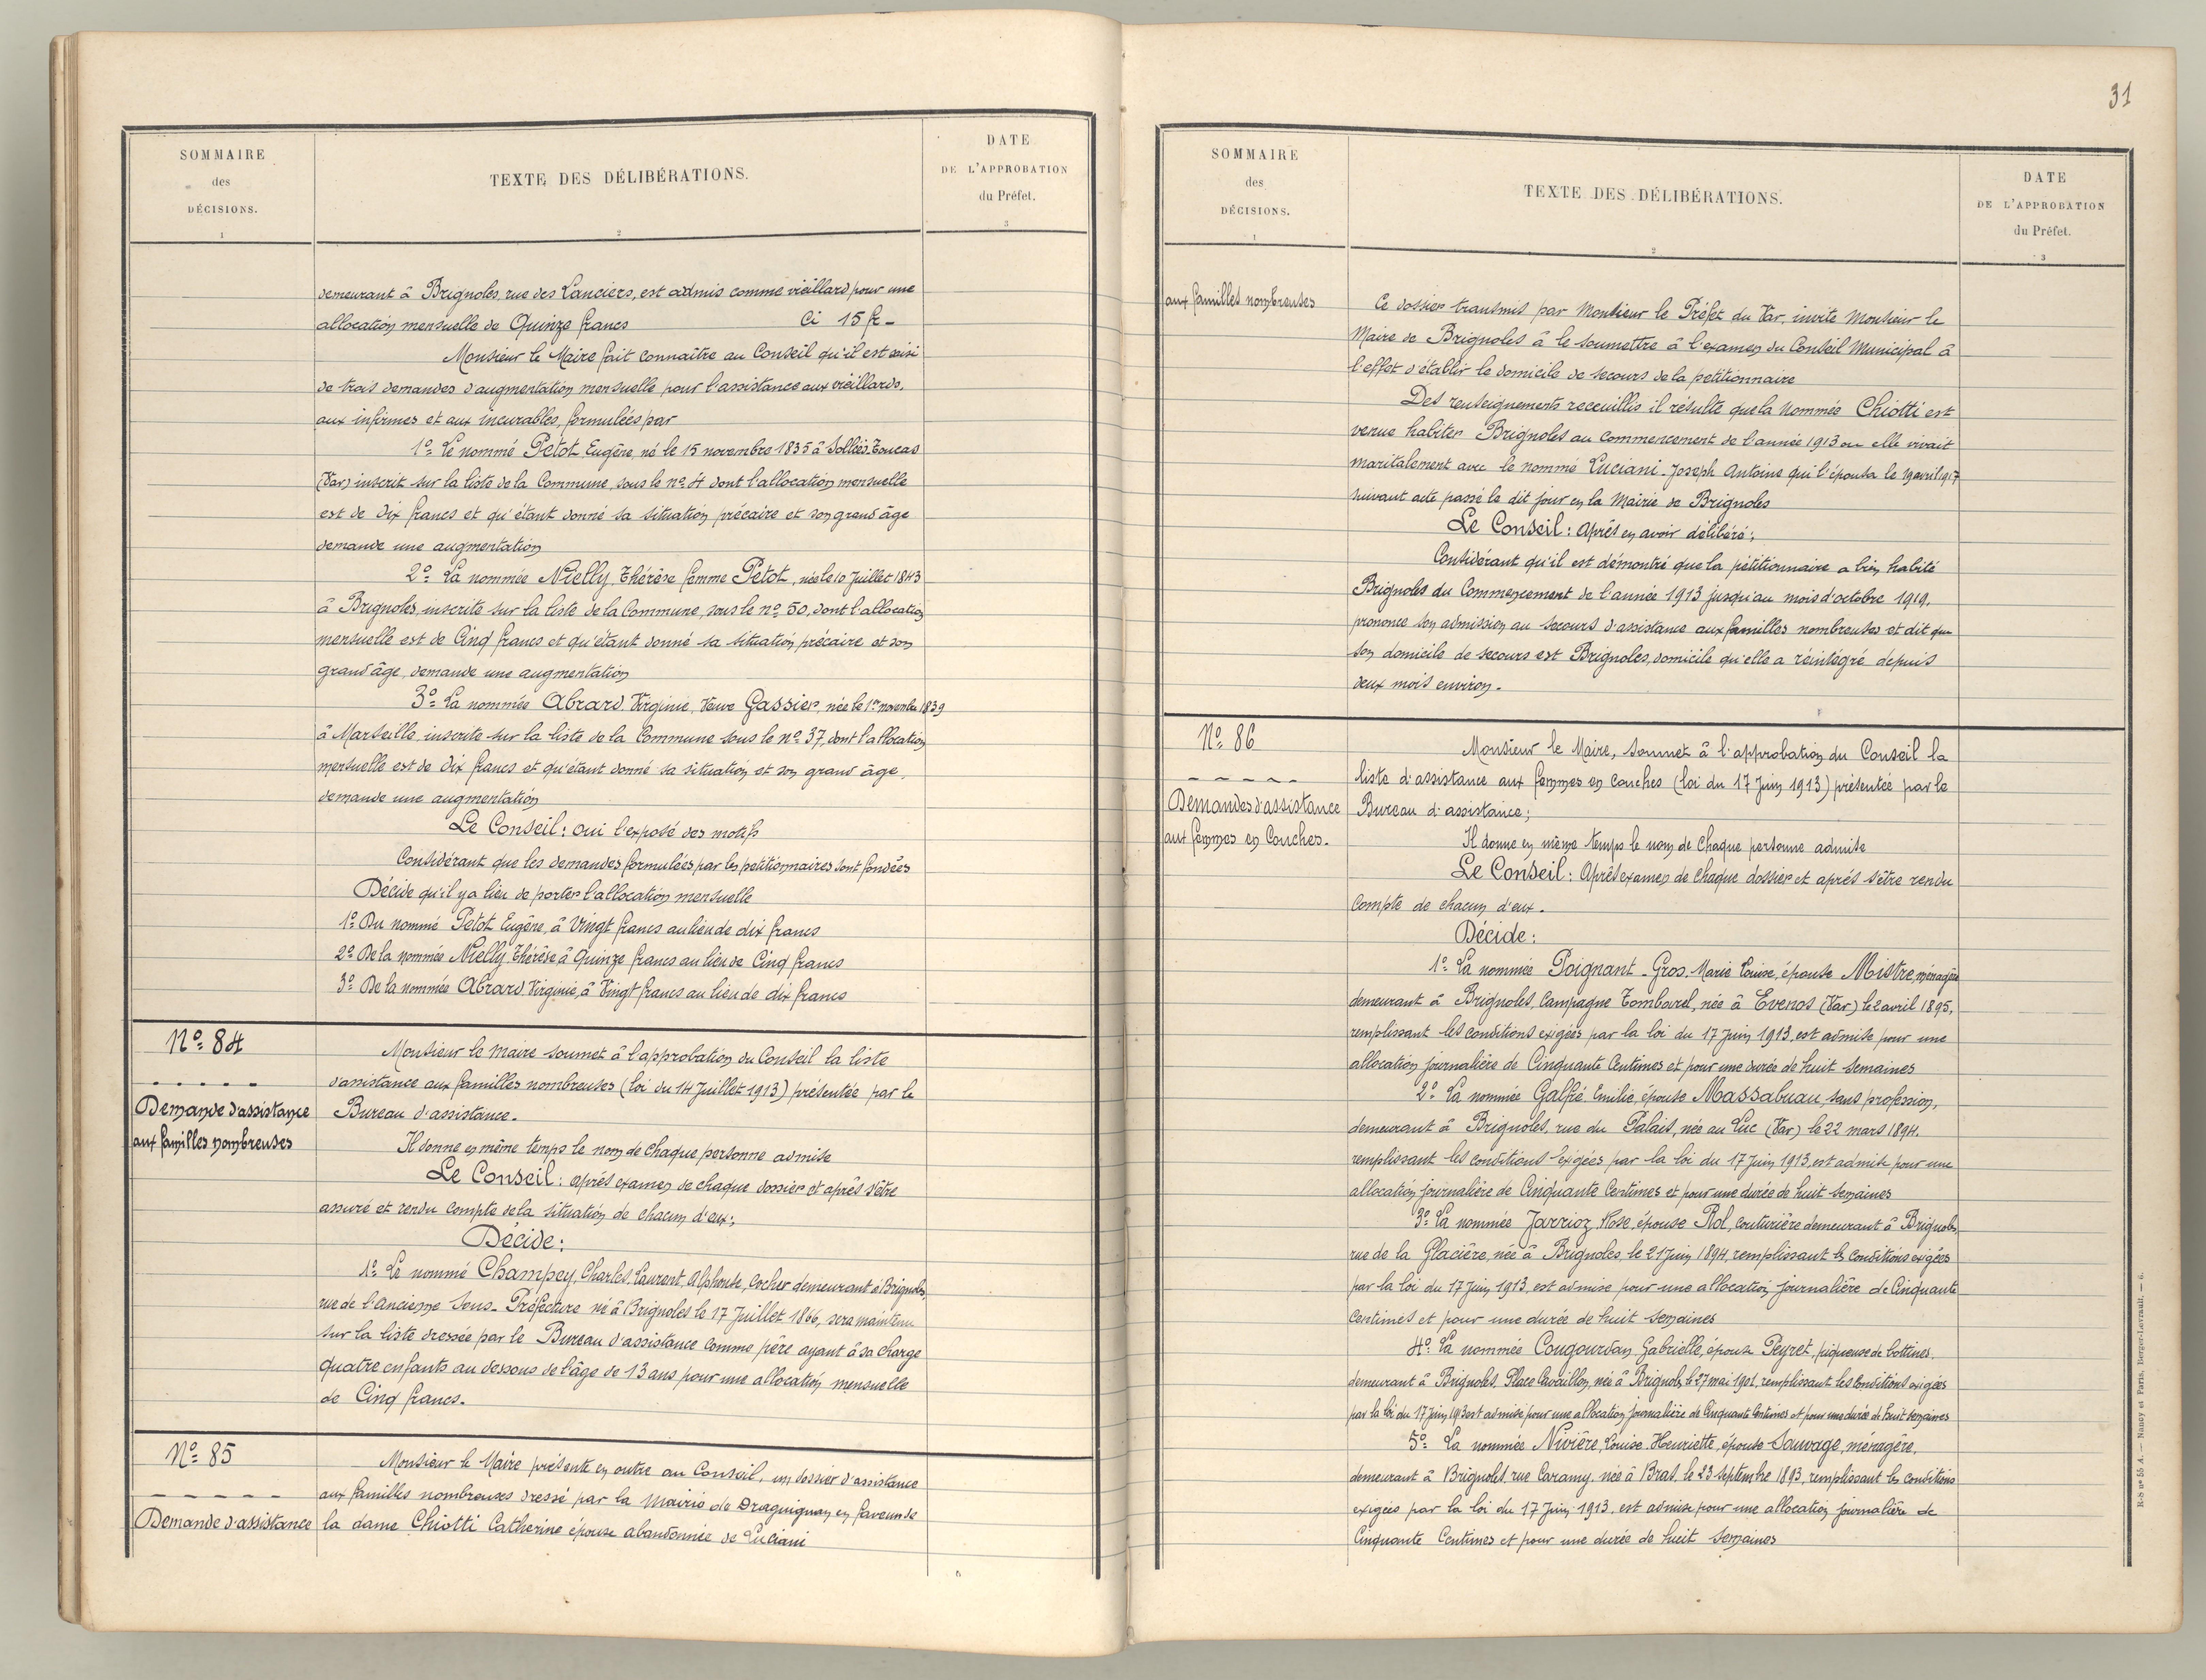 SOMMAIRE
des
DÉCISIONS.
1
TEXTE DES DÉLIBÉRATIONS.
2
DATE
DE L'APPROBATION
du Préfet.
3
demeurant à Brignoles, rue des Lanciers, est admis comme vieillard pour une
allocation mensuelle de Quinze francs Ci 15 fr -
Monsieur le Maire fait connaître au Conseil qu'il est saisi
de trois demandes d'augmentation mensuelle pour l'assistance aux vieillards,
aux infirmes et aux incurables, formulées par
1º Le nommé Petot Eugène, né le 15 novembre 1835 à Solliès-Toucas
(Var) inscrit sur la liste de la Commune, sous le nº 4 dont l'allocation mensuelle
est de Dix francs et qu'étant donné sa situation précaire et son grand âge
demande une augmentation
2º La nommée Nielly Thérèse femme Petot, née le 10 Juillet 1843
à Brignoles, inscrite sur la liste de la Commune, sous le nº 50, dont l'allocation
mensuelle est de Cinq francs et qu'étant donné sa situation précaire et son
grand âge, demande une augmentation
3º La nommée Abrard Virginie, Veuve Gassier, née le 1er novembre 1839
à Marseille, inscrite sur la liste de la Commune sous le nº 37, dont l'allocation
mensuelle est de Dix francs et qu'étant donné sa situation et son grand âge,
demande une augmentation
Le Conseil: oui l'exposé des motifs
Considérant que les demandes formulées par les petitionnaires sont fondées
Décide qu'il y a lieu de porter l'allocation mensuelle
1º Du nommé Petot Eugène, à Vingt francs au lieu de dix francs
2º De la nommée Nielly Thérèse à Quinze francs au lieu de Cinq francs
3º De la nommée Abrard Virginie, à Vingt francs au lieu de dix francs
Nº 84
Demande d'assistance
aux familles nombreuses
Monsieur le Maire soumet à l'approbation du Conseil la liste
d'assistance aux familles nombreuses (loi du 14 Juillet 1913) présentée par le
Bureau d'assistance.
Il donne en même temps le nom de chaque personne admise
Le Conseil: après examen de chaque dossier et après s'être
assuré et rendu compte de la situation de chacun d'eux;
Décide:
1º Le nommé Champey, Charles, Laurent, Alphonse, Cocher demeurant à Brignoles,
rue de l'Ancienne Sous-Préfecture né à Brignoles le 17 Juillet 1866, sera maintenu
sur la liste dressée par le Bureau d'assistance comme père ayant à sa charge
quatre enfants au dessous de l'âge de 13 ans pour une allocation mensuelle
de Cinq francs.
Nº 85
Demande d'assistance
Monsieur le Maire présente en outre au Conseil, un dossier d'assistance
aux familles nombreuses dressé par la Mairie de Draguignan en faveur de
la dame Chiotti Catherine épouse abandonnée de Luciani
31
SOMMAIRE
des
DÉCISIONS.
1
TEXTE DES DÉLIBÉRATIONS.
2
DATE
DE L'APPROBATION
du Préfet.
3
aux familles nombreuses
Ce dossier transmis par Monsieur le Préfet du Var, invite Monsieur le
Maire de Brignoles à le soumettre à l'examen du Conseil Municipal à
l'effet d'établir le domicile de secours de la petitionnaire
Des renseignements receuillis il résulte que la nommée Chiotti est
venue habiter Brignoles au commencement de l'année 1913 ou elle vivait
maritalement avec le nommé Luciani Joseph Antoine qui l'épousa le 19 avril 1917
suivant acte passé le dit jour en la Mairie de Brignoles
Le Conseil: Après en avoir délibéré;
Considérant qu'il est démontré que la pétitionnaire a bien habité
Brignoles du Commencement de l'année 1913 jusqu'au mois d'octobre 1919,
prononce son admission au secours d'assistance aux familles nombreuses et dit que
son domicile de secours est Brignoles, domicile qu'elle a réintégré depuis
deux mois environ.
Nº 86
Demandes d'assistance
aux femmes en Couches.
Monsieur le Maire, soumet à l'approbation du Conseil la
liste d'assistance aux femmes en couches (loi du 17 Juin 1913) présentée par le
Bureau d'assistance;
Il donne en même temps le nom de chaque personne admise
Le Conseil: Après examen de chaque dossier et après s'être rendu
compte de chacun d'eux.
Décide:
1º La nommée Poignant-Gros, Marie Louise, épouse Mistre, ménagère
demeurant à Brignoles, Campagne Tombarel, née à Evenos (Var) le 2 avril 1895,
remplissant les conditions exigées par la loi du 17 Juin 1913 est admise pour une
allocation journalière de Cinquante Centimes et pour une durée de huit semaines
2º La nommée Galfié Emilie, épouse Massabuau, sans profession,
demeurant à Brignoles, rue du Palais, née au Luc (Var) le 22 mars 1894,
remplissant les conditions exigées par la loi du 17 Juin 1913, est admise pour une
allocation journalière de Cinquante Centimes et pour une durée de huit semaines
3º La nommée Jarrioz, Rose, épouse Rol, couturière demeurant à Brignoles,
rue de la Glacière, née à Brignoles, le 21 Juin 1894, remplissant les conditions exigées
par la loi du 17 Juin 1913, est admise pour une allocation journalière de Cinquante
Centimes et pour une durée de huit semaines
4º La nommée Cougourdan, Gabrielle, épouse Peyret, piqueuse de bottines,
demeurant à Brignoles, Place Cavaillon, née à Brignoles le 27 mai 1901, remplissant les conditions exigées
par la loi du 17 Juin 1913 est admise pour une allocation journalière de Cinquante Centimes et pour une durée de huit semaines
5º La nommée Nivière, Louise Henriette, épouse Sauvage, ménagère,
demeurant à Brignoles, rue Caramy, née à Bras, le 23 septembre 1893, remplissant les conditions
exigées par la loi du 17 Juin 1913, est admise pour une allocation journalière de
Cinquante Centimes et pour une durée de huit semaines
R-S nº 55 A. — Nancy et Paris, Berger-Levrault. — 6.